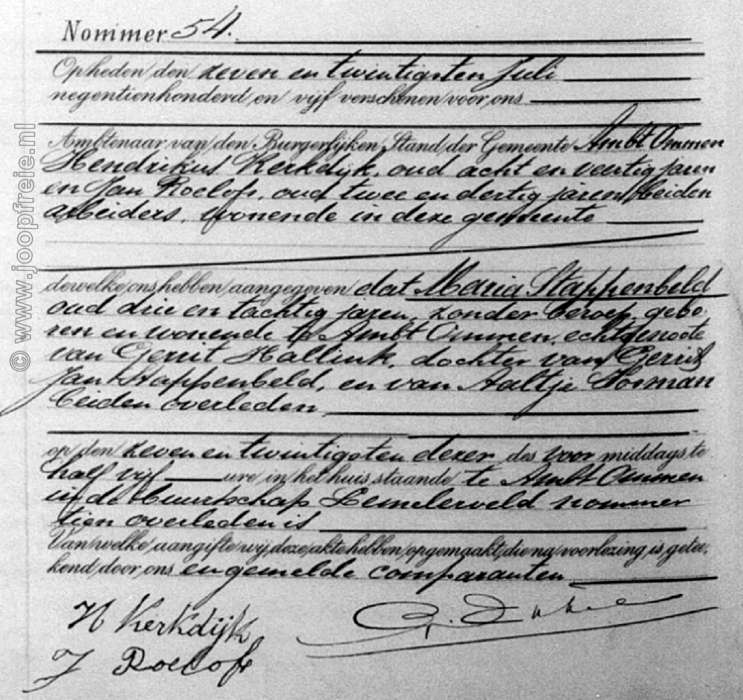 Nommer 54.
Opheden den zeven en twintigsten Juli
negentienhonderd en vijf verschenen voor ons
Ambtenaar van den Burgerlijken Stand der Gemeente Ambt Ommen
Hendrikus Kerkdijk, oud acht en veertig jaren
en Jan Roelofs, oud twee en dertig jaren, beiden
arbeiders, wonende in deze gemeente
dewelke ons hebben aangegeven dat Maria Stappenbeld
oud drie en tachtig jaren, zonder beroep, gebo
ren en wonende te Ambt Ommen, echtgenoote
van Gerrit Hallink, dochter van Gerrit
Jan Stappenbeld, en van Aaltje
beiden overleden
op den zeven en twintigsten dezer des voor middags te
half vijf ure in het huis staande te Ambt Ommen
in de buurtschap Lemelerveld nommer
tien overleden is
Van welke aangifte wij deze akte hebben opgemaakt, die na voorlezing is getee-
kend door ons en gemelde comparanten
H Kerkdijk
J Roelofs
© www.joopfreie.nl